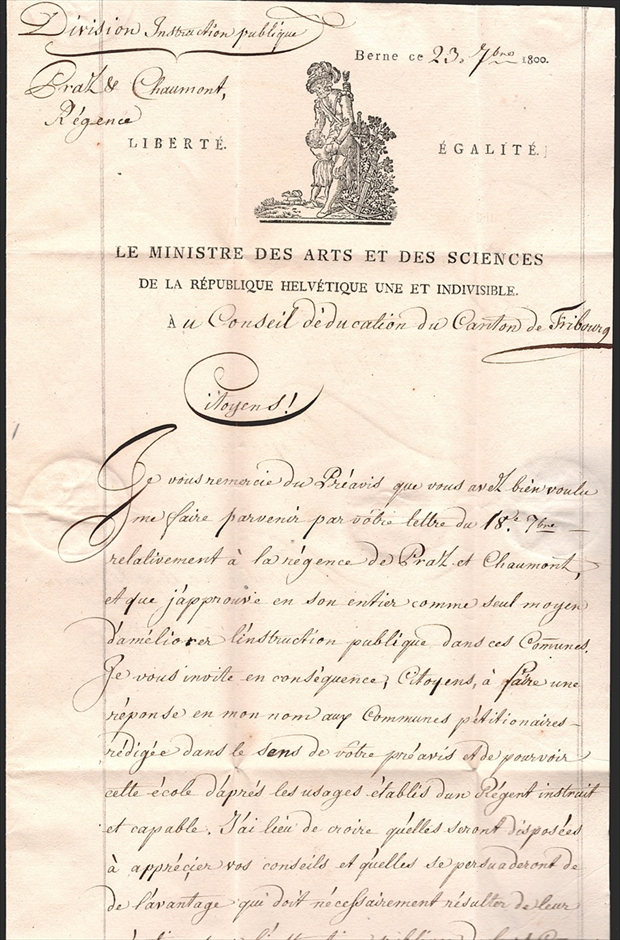 Division Instruction publique
Berne ce 23. 7bre 1800.
Praz & Chaumont,
Régence
LIBERTÉ. ÉGALITÉ.
LE MINISTRE DES ARTS ET DES SCIENCES
DE LA RÉPUBLIQUE HELVÉTIQUE UNE ET INDIVISIBLE.
Au Conseil d'éducation du Canton de Fribourg
Citoyens!
Je vous remercie du Préavis que vous avez bien voulu
me faire parvenir par vôtre lettre du 18.e 7bre
relativement à la régence de Praz et Chaumont,
et que j'approuve en son entier comme seul moyen
d'améliorer l'instruction publique dans ces Comunes.
Je vous invite en conséquence, Citoyens, à faire une
réponse en mon nom aux Communes pétitionaires
rédigée dans le sens de vôtre préavis et de pourvoir
cette école d'aprés les usages établis d'un Régent instruit
et capable. J'ai lieu de croire qu'elles seront disposées
à apprécier vos conseils et qu'elles se persuaderont de
de l'avantage qui doit nécessairement résulter de leur